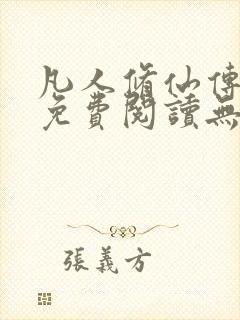 凡人脩仙傳
免費閱讀無
張義方